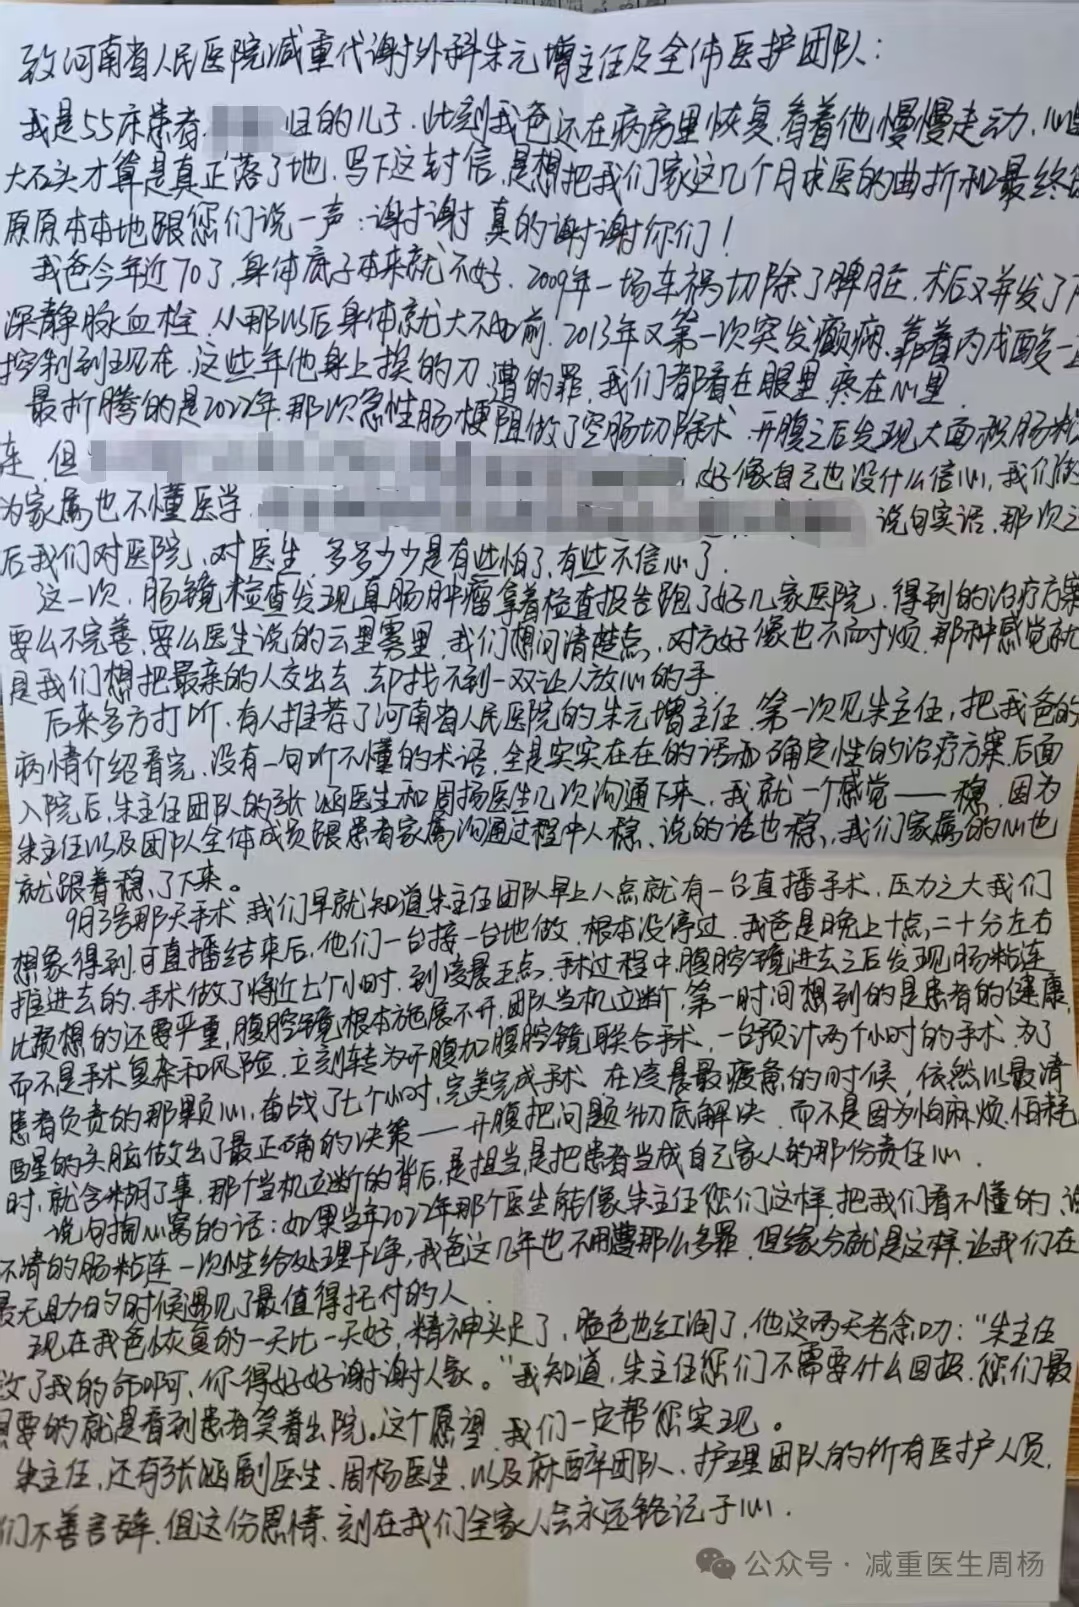 致河南省人民医院减重代谢外科朱元增主任及全体医护团队：
我是55床患者 归的儿子，此刻我爸还在病房里恢复，看着他慢慢走动，心里
大石头才算是真正落了地，写下这封信，是想把我们家这几个月求医的曲折和最终
原原本本地跟您们说一声：谢谢 真的谢谢你们！
我爸今年近70了，身体底子本来就不好，2009年一场车祸切除了脾脏，术后又并发了
深静脉血栓，从那以后身体就大不如前，2013年又第一次突发癫痫，靠着丙戊酸一
控制到现在，这些年他身上挨的刀 遭的罪，我们都看在眼里，疼在心里，
最折腾的是2022年，那次急性肠梗阻做了空肠切除术，开腹之后发现大面积肠粘
连，但 好像自己也没什么信心，我们做
为家属也不懂医学， 说句实话，那次之
后我们对医院，对医生，多多少少是有些怕了，有些不信心了，
这一次，肠镜检查发现直肠肿瘤拿着检查报告跑了好几家医院，得到的治疗方案
要么不完善，要么医生说的云里雾里，我们想问清楚点，对方好像也不耐烦，那种感觉就
是我们想把最亲的人交出去，却找不到一双让人放心的手，
后来多方打听，有人推荐了河南省人民医院的朱元增主任，第一次见朱主任，把我爸的
病情介绍看完，没有一句听不懂的术语，全是实实在在的话和确定性的治疗方案，后面
入院后，朱主任团队的张涵医生和周扬医生几次沟通下来，我就一个感觉——稳，因为
朱主任以及团队全体成员跟患者家属沟通过程中人稳、说的话也稳，我们家属的心也
就跟着稳了下来。
9月3号那天手术，我们早就知道朱主任团队早上八点就有一台直播手术，压力之大我们
想象得到，可直播结束后，他们一台接一台地做，根本没停过，我爸是晚上十点二十分左右
推进去的，手术做了将近七个小时，到凌晨五点，手术过程中，腹腔镜进去之后发现肠粘连
比预想的还要严重，腹腔镜根本施展不开，团队当机立断，第一时间想到的是患者的健康，
而不是手术复杂和风险，立刻转为开腹加腹腔镜联合手术，一台预计两个小时的手术，为了
患者负责的那颗心，奋战了七个小时，完美完成手术，在凌晨最疲惫的时候，依然以最清
醒的头脑做出了最正确的决策——开腹把问题彻底解决，而不是因为怕麻烦、怕耗
时，就含糊了事，那个当机立断的背后，是担当是把患者当成自己家人的那份责任心，
说句掏心窝的话：如果当年2022年那个医生能像朱主任您们这样，把我们看不懂的、说
不清的肠粘连一次性给处理干净，我爸这几年也不用遭那么多罪，但缘分就是这样，让我们在
最无助的时候遇见了最值得托付的人，
现在我爸恢复的一天比一天好，精神头足了，脸色也红润了，他这两天老念叨：“朱主任
救了我的命啊，你得好好谢谢人家。”我知道，朱主任您们不需要什么回报，您们最
想要的就是看到患者笑着出院。这个愿望，我们一定帮您实现。
朱主任，还有张涵副医生、周杨医生，以及麻醉团队、护理团队的所有医护人员，
们不善言辞，但这份恩情，刻在我们全家人会永远铭记于心，
公众号·减重医生周杨